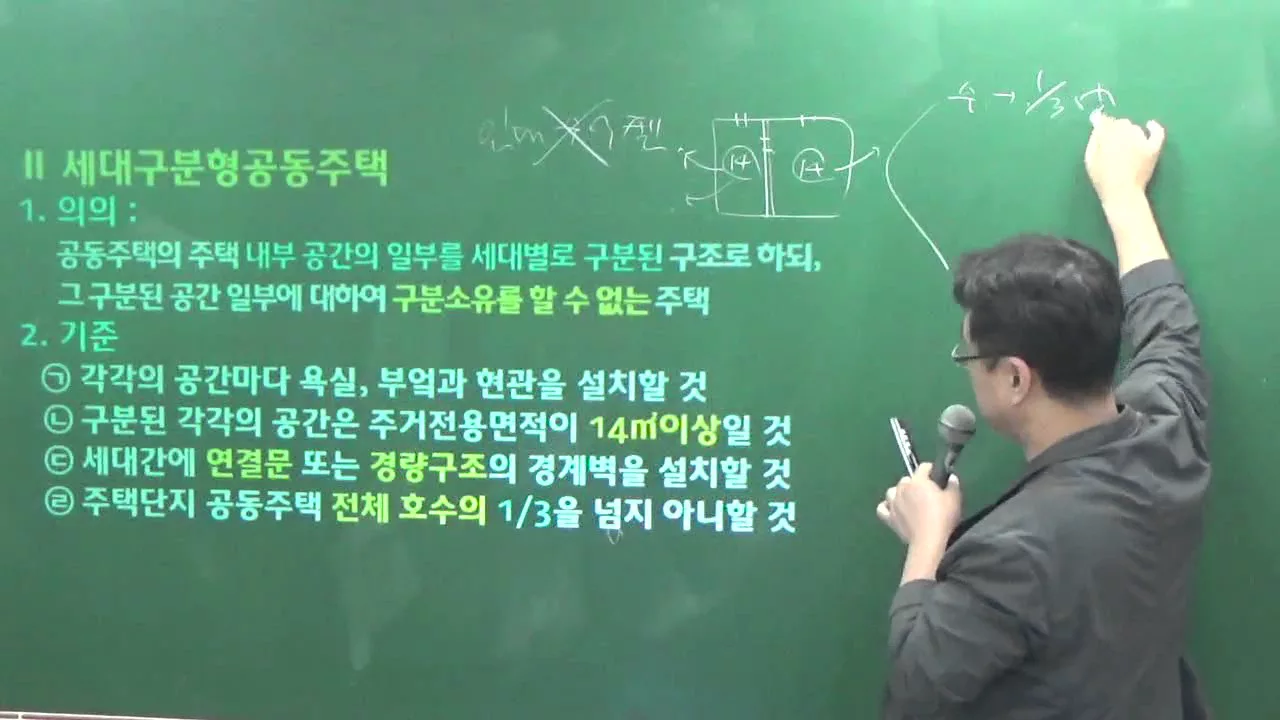 Ⅱ 세대구분형공동주택
1. 의의 :
공동주택의 주택 내부 공간의 일부를 세대별로 구분된 구조로 하되,
그 구분된 공간 일부에 대하여 구분소유를 할 수 없는 주택
2. 기준
㉠ 각각의 공간마다 욕실, 부엌과 현관을 설치할 것
㉡ 구분된 각각의 공간은 주거전용면적이 14㎡이상일 것
㉢ 세대간에 연결문 또는 경량구조의 경계벽을 설치할 것
㉣ 주택단지 공동주택 전체 호수의 1/3을 넘지 아니할 것
14
14
수 → 1/3